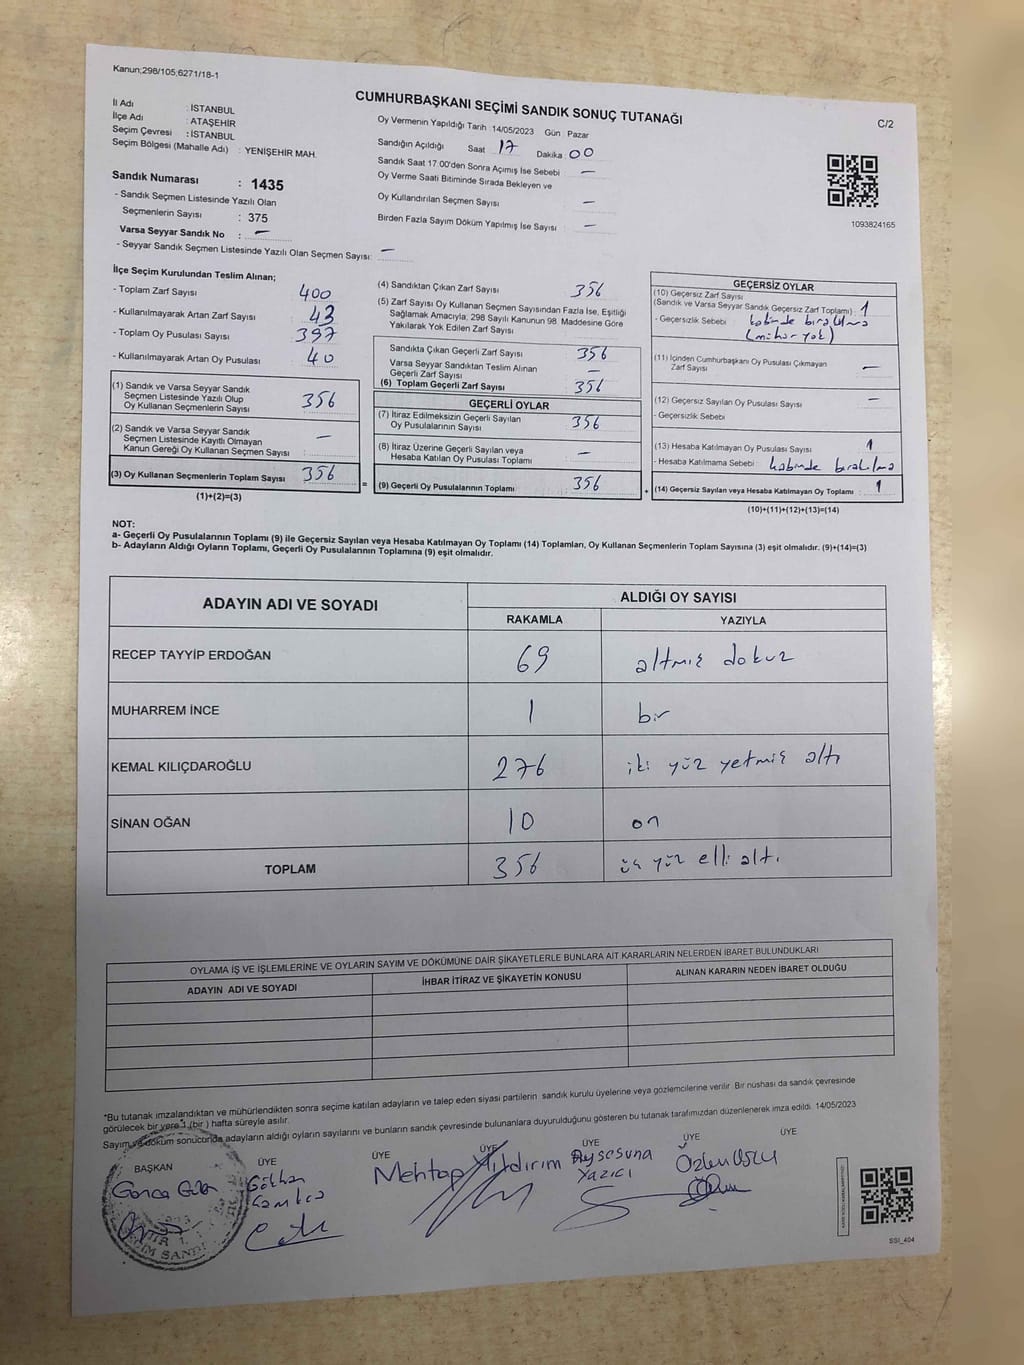 Kanun;298/105;6271/18-1
CUMHURBAŞKANI SEÇİMİ SANDIK SONUÇ TUTANAĞI
C/2
İl Adı : İSTANBUL
İlçe Adı : ATAŞEHİR
Seçim Çevresi : İSTANBUL
Seçim Bölgesi (Mahalle Adı) : YENİŞEHİR MAH.
Sandık Numarası : 1435
- Sandık Seçmen Listesinde Yazılı Olan
Seçmenlerin Sayısı : 375
Varsa Seyyar Sandık No : –
- Seyyar Sandık Seçmen Listesinde Yazılı Olan Seçmen Sayısı: –
Oy Vermenin Yapıldığı Tarih 14/05/2023 Gün Pazar
Sandığın Açıldığı Saat 17 Dakika 00
Sandık Saat 17 00'den Sonra Açımış İse Sebebi –
Oy Verme Saati Bitiminde Sırada Bekleyen ve
Oy Kullandırılan Seçmen Sayısı –
Birden Fazla Sayım Döküm Yapılmış İse Sayısı : –
1093824165
İlçe Seçim Kurulundan Teslim Alınan;
- Toplam Zarf Sayısı 400
- Kullanılmayarak Artan Zarf Sayısı 43
- Toplam Oy Pusulası Sayısı 397
- Kullanılmayarak Artan Oy Pusulası 40
(1) Sandık ve Varsa Seyyar Sandık
Seçmen Listesinde Yazılı Olup
Oy Kullanan Seçmenlerin Sayısı 356
(2) Sandık ve Varsa Seyyar Sandık
Seçmen Listesinde Kayıtlı Olmayan
Kanun Gereği Oy Kullanan Seçmen Sayısı : –
(3) Oy Kullanan Seçmenlerin Toplam Sayısı 356
(1)+(2)=(3)
(4) Sandıktan Çıkan Zarf Sayısı 356
(5) Zarf Sayısı Oy Kullanan Seçmen Sayısından Fazla İse, Eşitliği
Sağlamak Amacıyla, 298 Sayılı Kanunun 98. Maddesine Göre
Yakılarak Yok Edilen Zarf Sayısı
Sandıkta Çıkan Geçerli Zarf Sayısı 356
Varsa Seyyar Sandıktan Teslim Alınan
Geçerli Zarf Sayısı –
(6) Toplam Geçerli Zarf Sayısı 356
GEÇERLİ OYLAR
(7) İtiraz Edilmeksizin Geçerli Sayılan
Oy Pusulalarının Sayısı 356
(8) İtiraz Üzerine Geçerli Sayılan veya
Hesaba Katılan Oy Pusulası Toplamı –
= (9) Geçerli Oy Pusulalarının Toplamı 356
GEÇERSİZ OYLAR
(10) Geçersiz Zarf Sayısı
(Sandık ve Varsa Seyyar Sandık Geçersiz Zarf Toplamı) : 1
- Geçersizlik Sebebi kabinde bırakılma
(mühür yok)
(11) İçinden Cumhurbaşkanı Oy Pusulası Çıkmayan
Zarf Sayısı –
(12) Geçersiz Sayılan Oy Pusulası Sayısı –
- Geçersizlik Sebebi
(13) Hesaba Katılmayan Oy Pusulası Sayısı 1
- Hesaba Katılmama Sebebi kabinde bırakılma
+ (14) Geçersiz Sayılan veya Hesaba Katılmayan Oy Toplamı : 1
(10)+(11)+(12)+(13)=(14)
NOT:
a- Geçerli Oy Pusulalarının Toplamı (9) ile Geçersiz Sayılan veya Hesaba Katılmayan Oy Toplamı (14) Toplamları, Oy Kullanan Seçmenlerin Toplam Sayısına (3) eşit olmalıdır. (9)+(14)=(3)
b- Adayların Aldığı Oyların Toplamı, Geçerli Oy Pusulalarının Toplamına (9) eşit olmalıdır.
ADAYIN ADI VE SOYADI
ALDIĞI OY SAYISI
RAKAMLA YAZIYLA
RECEP TAYYİP ERDOĞAN 69 altmış dokuz
MUHARREM İNCE 1 bir
KEMAL KILIÇDAROĞLU 276 iki yüz yetmiş altı
SİNAN OĞAN 10 on
TOPLAM 356 üç yüz elli altı
OYLAMA İŞ VE İŞLEMLERİNE VE OYLARIN SAYIM VE DÖKÜMÜNE DAİR ŞİKAYETLERLE BUNLARA AİT KARARLARIN NELERDEN İBARET BULUNDUKLARI
ADAYIN ADI VE SOYADI İHBAR İTİRAZ VE ŞİKAYETİN KONUSU ALINAN KARARIN NEDEN İBARET OLDUĞU
*Bu tutanak imzalandıktan ve mühürlendikten sonra seçime katılan adayların ve talep eden siyasi partilerin sandık kurulu üyelerine veya gözlemcilerine verilir. Bir nüshası da sandık çevresinde
görülecek bir yere 1 (bir) hafta süreyle asılır.
Sayım ve döküm sonucunda adayların aldığı oyların sayılarını ve bunların sandık çevresinde bulunanlara duyurulduğunu gösteren bu tutanak tarafımızdan düzenlenerek imza edildi. 14/05/2023
BAŞKAN ÜYE ÜYE ÜYE ÜYE ÜYE
Gökhan
Mehtap Yıldırım
Aysesuna
Yazıcı
SSI_404